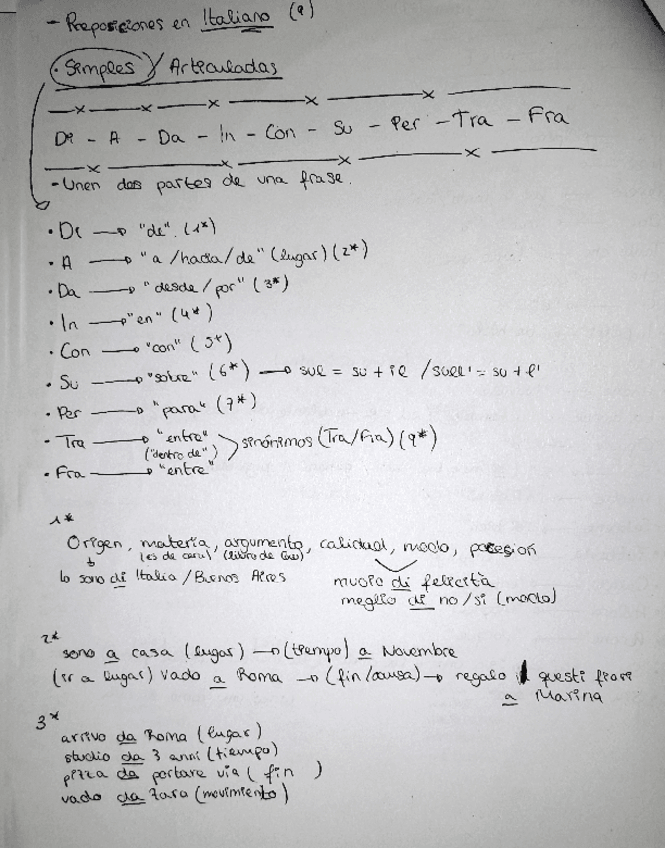 - Preposiciones en Italiano (9)
· Simples y Articuladas
Di - A - Da - In - Con - Su - Per - Tra - Fra
- Unen dos partes de una frase.
· Di → "de". (1*)
· A → "a /hacia/de" (lugar) (2*)
· Da → "desde/por" (3*)
· In → "en" (4*)
· Con → "con" (5*)
· Su → "sobre" (6*) → sul = su + il /sull' = su + l'
· Per → "para" (7*)
- Tra → "entre" ("dentro de") sinónimos (Tra/Fra) (9*)
· Fra → "entre"
1*
Origen, materia, argumento, calidad, modo, posesión
(es de) (libro de)
Io sono di Italia /Buenos Aires
muoio di felicità
meglio di no/si (modo)
2*
sono a casa (lugar) → (tiempo) a Novembre
(ir a lugar) Vado a Roma → (fin/causa) → regalo questi fiori
a Marina
3*
arrivo da Roma (lugar)
studio da 3 anni (tiempo)
pizza da portare via (fin )
vado da Zara (movimiento)